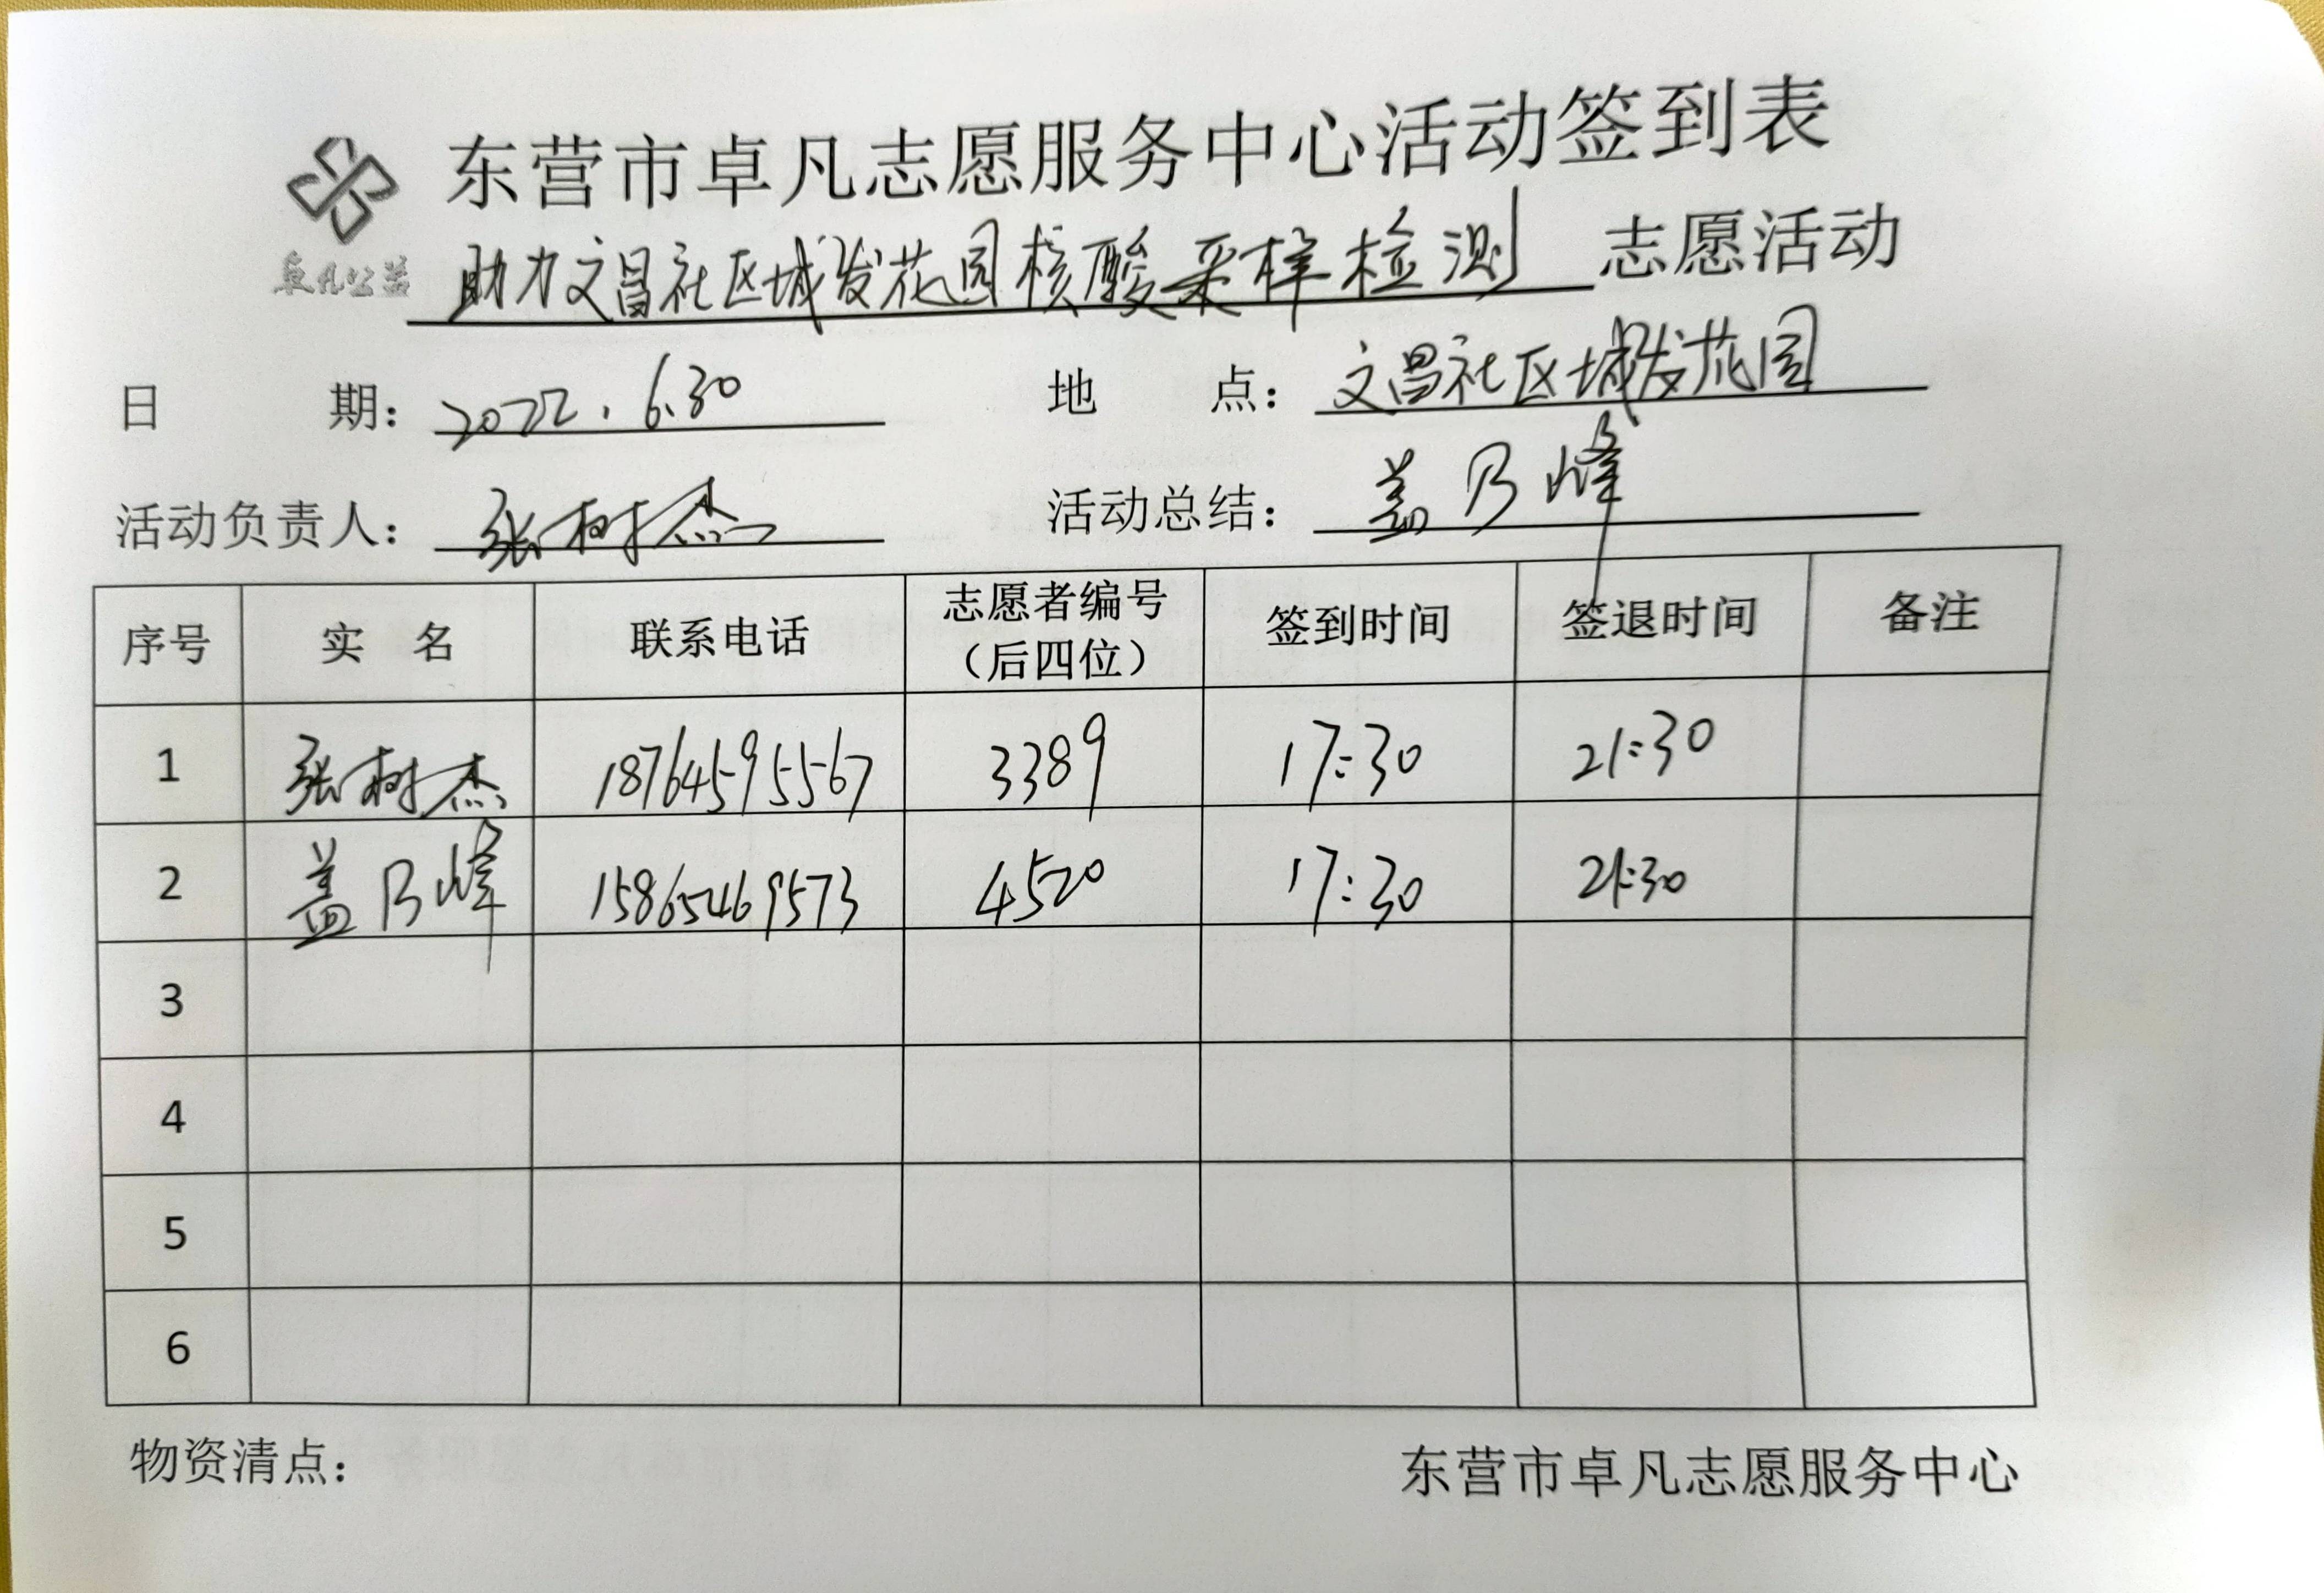 东营市卓凡志愿服务中心活动签到表
卓凡公益
助力文昌社区城发花园核酸采样检测 志愿活动
日 期： 2022.6.30 地 点： 文昌社区城发花园
活动负责人： 张树杰 活动总结： 盖乃峰
序号 实 名 联系电话 志愿者编号（后四位） 签到时间 签退时间 备注
1 张树杰 18764595567 3389 17:30 21:30
2 盖乃峰 15865469573 4520 17:30 21:30
3
4
5
6
物资清点： 东营市卓凡志愿服务中心